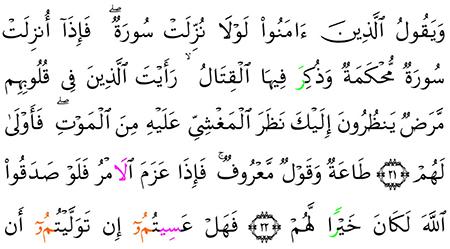 وَيَقُولُ ٱلَّذِينَ ءَامَنُوا۟ لَوْلَا نُزِّلَتْ سُورَةٌ ۖ فَإِذَآ أُنزِلَتْ
سُورَةٌ مُّحْكَمَةٌ وَذُكِرَ فِيهَا ٱلْقِتَالُ ۙ رَأَيْتَ ٱلَّذِينَ فِى قُلُوبِهِم
مَّرَضٌ يَنظُرُونَ إِلَيْكَ نَظَرَ ٱلْمَغْشِىِّ عَلَيْهِ مِنَ ٱلْمَوْتِ ۖ فَأَوْلَىٰ
لَهُمْ ﴿٢١﴾ طَاعَةٌ وَقَوْلٌ مَّعْرُوفٌ ۚ فَإِذَا عَزَمَ ٱلَامْرُ فَلَوْ صَدَقُوا۟
ٱللَّهَ لَكَانَ خَيْرًا لَّهُمْ ﴿٢٢﴾ فَهَلْ عَسِيتُمُۥٓ إِن تَوَلَّيْتُمُۥٓ أَن